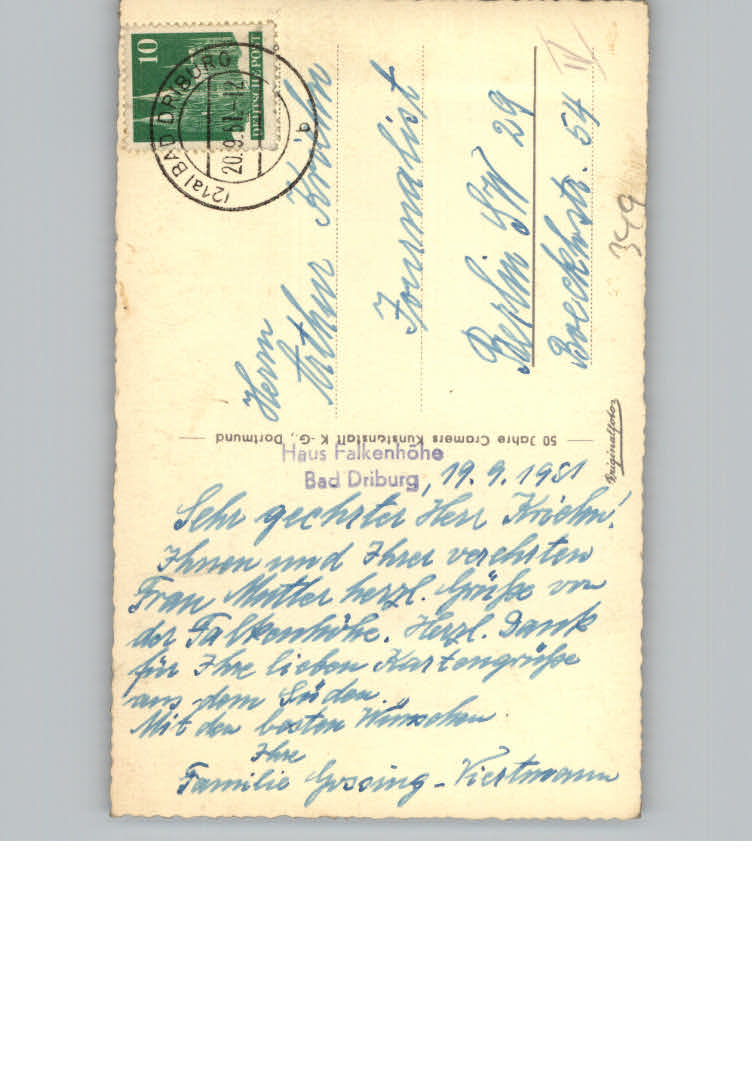 10
DEUTSCHE POST
(21a) BAD DRIBURG
20.9.51.-12
a
Herrn
Arthur Kriehn
Journalist
Berlin SW 29
Boeckhstr. 54
IV
349
50 Jahre Cramers Kunstanstalt K.-G., Dortmund
Originalfoto
Haus Falkenhöhe
Bad Driburg, 19.9.1951
Sehr geehrter Herr Kriehn!
Ihnen und Ihrer verehrten
Frau Mutter herzl. Grüße von
der Falkenhöhe. Herzl. Dank
für Ihre lieben Kartengrüße
aus dem Süden.
Mit den besten Wünschen
Ihre
Familie